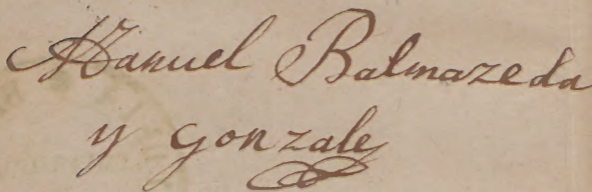 Manuel Balmazeda
y gonzales